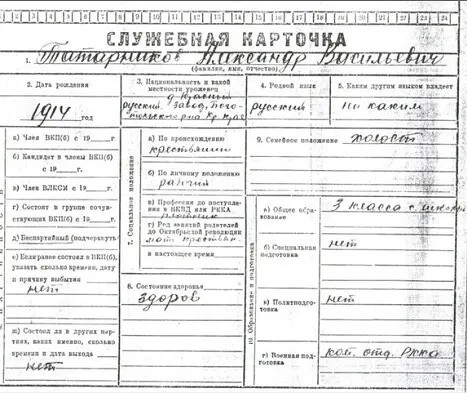 1 2 3 4 5 6 7 8 9 10 11 12 13 14 15 16 17 18 19 20 21 22 23 24
СЛУЖЕБНАЯ КАРТОЧКА
1. Татарников Александр Васильевич
(фамилия, имя, отчество)
2. Дата рождения
1914
3. Национальность и какой местности уроженец
русский
Завод,
4. Родной язык
русский
5. Каким другим языком владеет
ни каким
а) Член ВКП(б) с 19 г.
б) Кандидат в члены ВКП(б) с 19 г.
в) Член ВЛКСМ с 19 г.
г) Состоял в группе сочувствующих ВКП(б) с 19 г.
д) Беспартийный (подчеркнуть)
е) Если ранее состоял в ВКП(б), указать сколько времени, дату и причину выбытия
нет
ж) Состоял ли в других партиях, каких именно, сколько времени и дата выхода
нет
7. Социальное положение
а) По происхождению
крестьянин
б) По личному положению
рабочий
в) Профессия до поступления в НКВД или РККА
плотник
г) Род занятий родителей до Октябрьской революции
крестьян.
в настоящее время
8. Состояние здоровья
здоров
9. Семейное положение холост
10. Образование и подготовка
а) Общее образование
3 класса с. школы
б) Специальная подготовка
нет
в) Политподготовка
нет
г) Военная подготовка
ком. отд. РККА